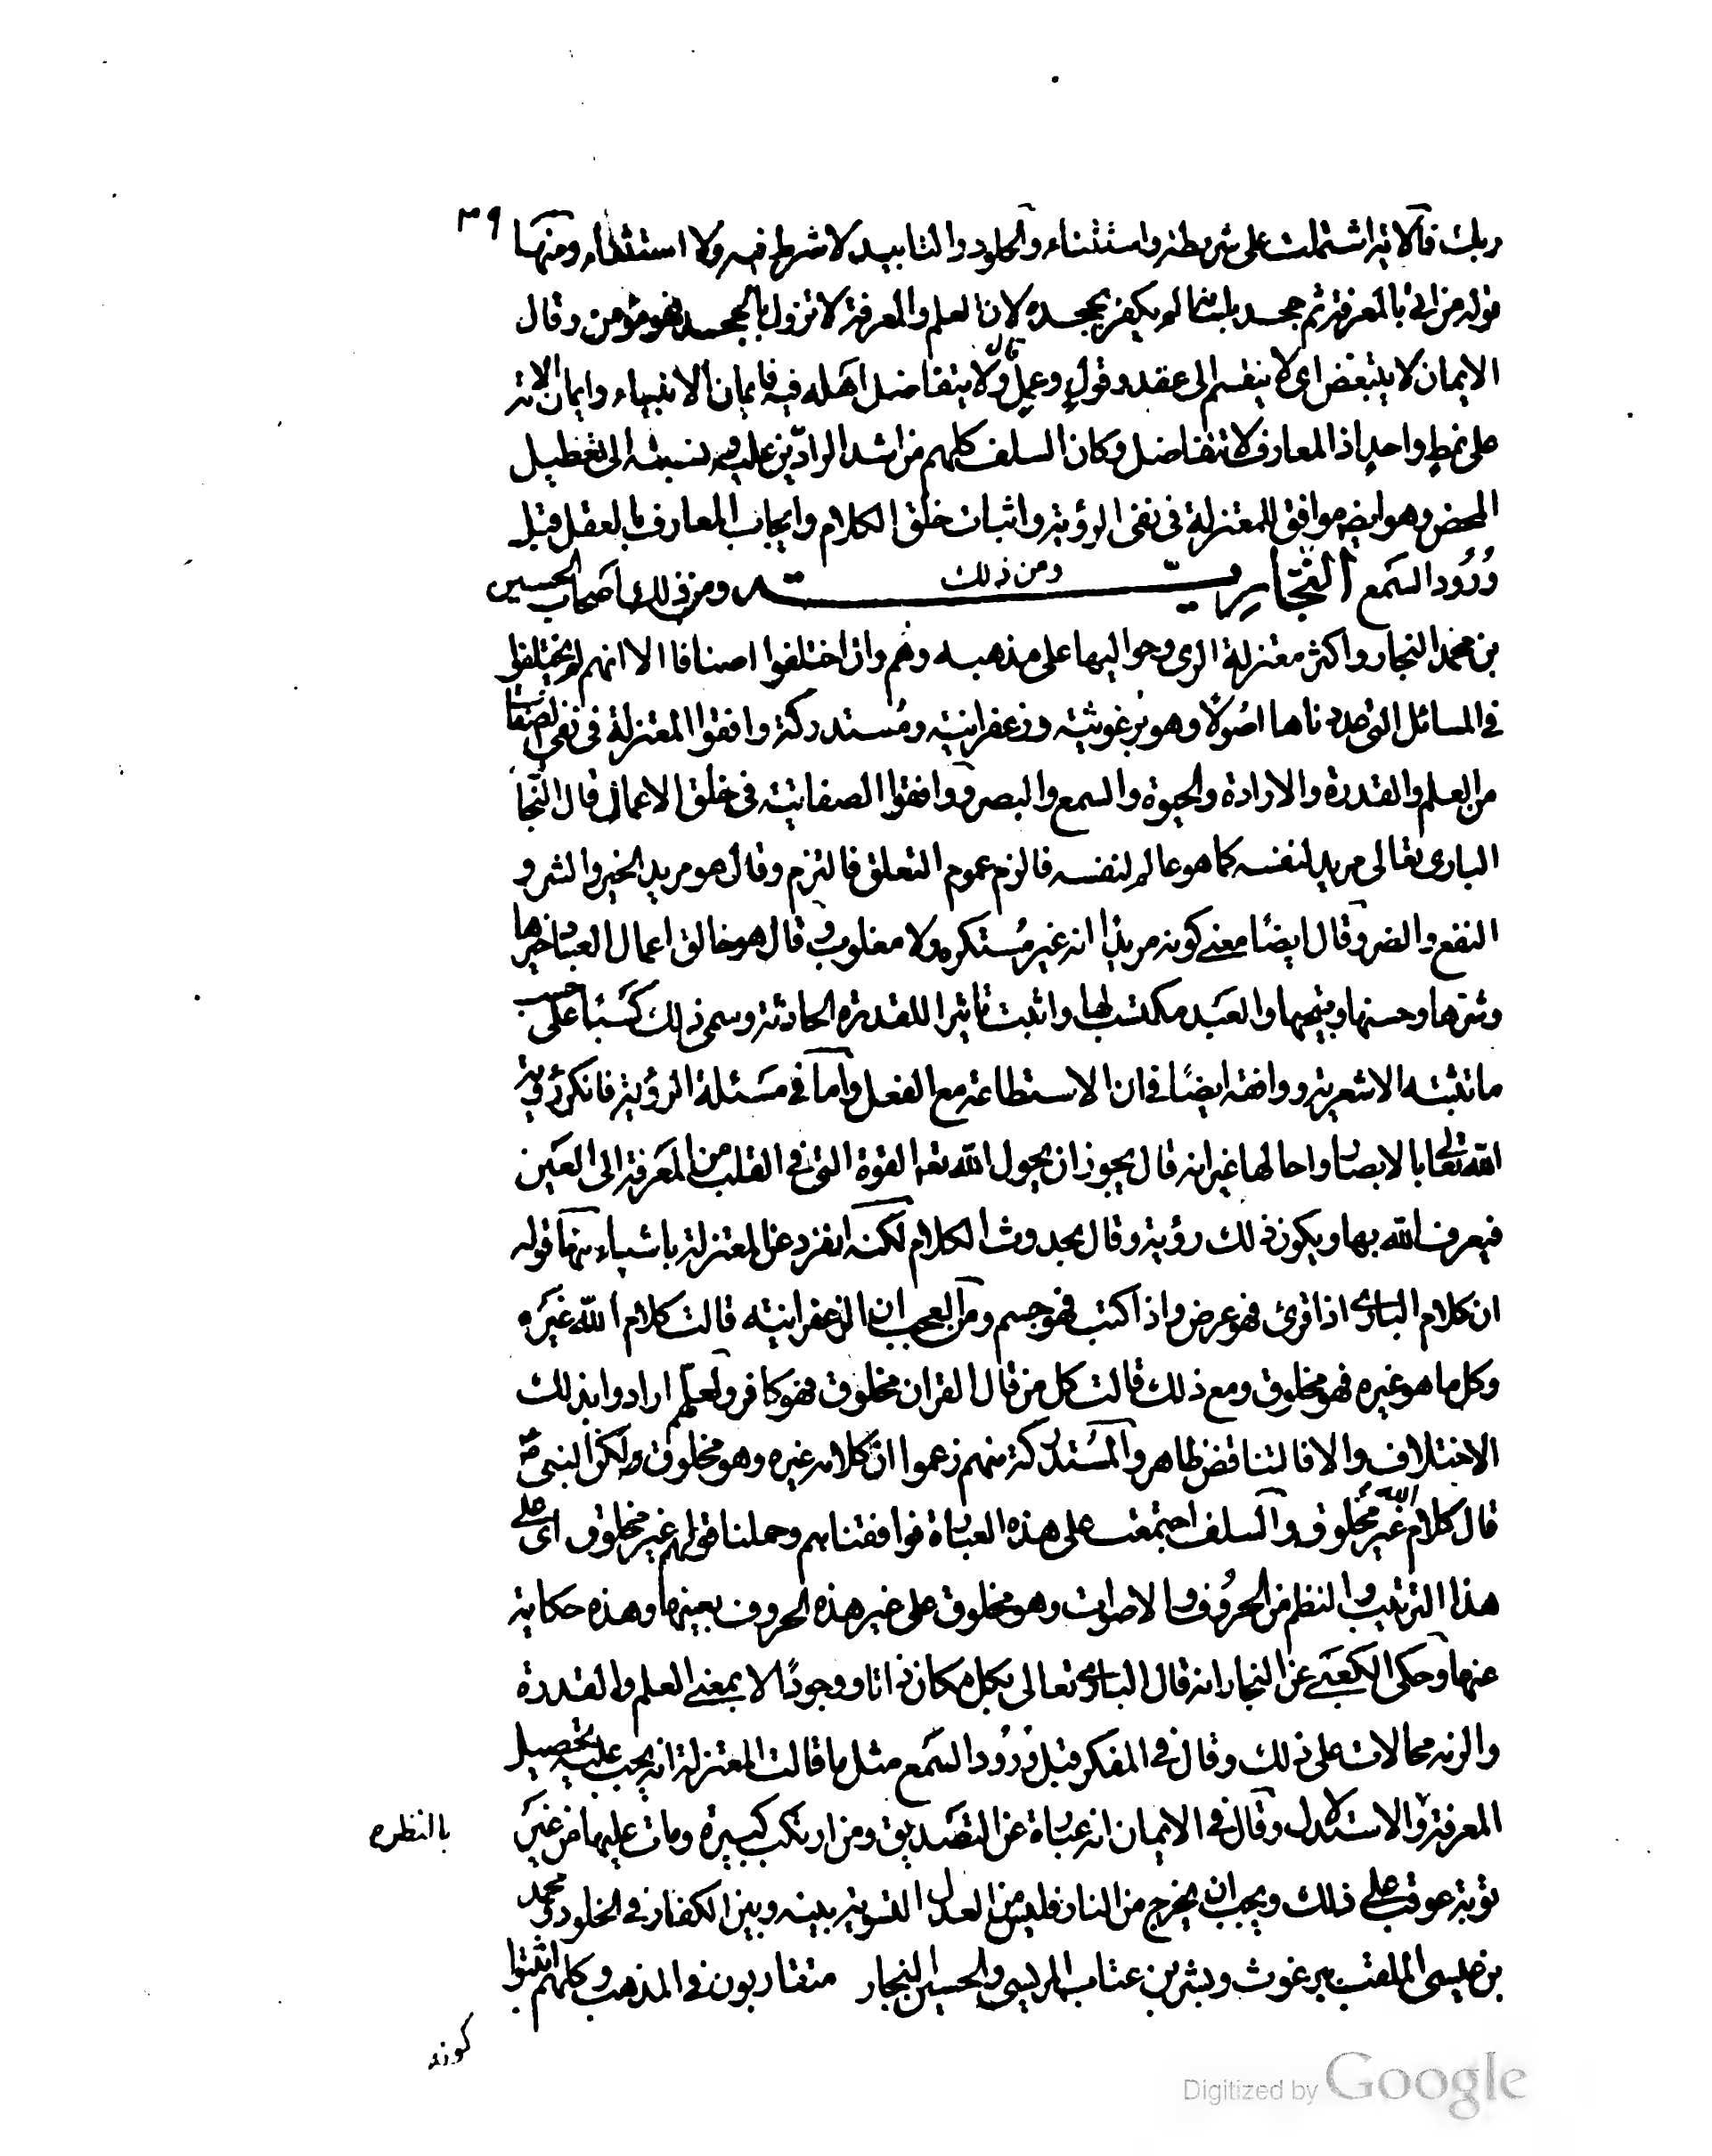 ٣٩
ربك فالاية اشتملت على شريطة واستثناء والخلود والتابيد لا شرط فيه ولا استثناء ومنها
قوله من اتى بالمعرفة ثم جحد بلسانه لم يكفر بجحده لان العلم والمعرفة لا تزول بالجحد فهو مؤمن وقال
الايمان لا يتبعض اى لا ينقسم الى عقد وقول وعمل قال ولا يتفاضل اهله فيه فايمان الانبياء وايمان الامة
على نمط واحد اذ المعارف لا تتفاضل وكان السلف كلهم من اشد الرادين عليه ونسبته الى تعطيل
المحض وهو ايضا موافق للمعتزلة فى نفى الرؤية واثبات خلق الكلام وايجاب المعارف بالعقل قبل
ورُود السمع النجارية ومن ذلك ومن ذلك اصحاب الحسين
بن محمد النجار واكثر معتزلة الرى وحواليها على مذهبه وهم وان اختلفوا اصنافا الا انهم لم يختلفوا
فى المسائل التى عددناها اصُولا وهو برغوثية وزعفرانية ومُستدركة وافقوا المعتزلة فى نفى الصفات
من العلم والقدرة والارادة والحيوة والسمع والبصر ووافقوا الصفاتية فى خلق الاعمال قال النجار
البارى تعالى مريد لنفسه كما هو عالم لنفسه فالزم عموم التعلق فالتزم وقال هو مريد الخير والشر و
النفع والضر وقال ايضًا معنى كونه مريدًا انه غير مُستكره ولا مغلوب وقال هو خالق اعمال العباد خيرها
وشرها وحسنها وقبيحها والعبد مكتسب لها واثبت تاثيرا للقدرة الحادثة وسمى ذلك كسبًا على حسب
ما تثبته الاشعرية ووافقه ايضًا فى ان الاستطاعة مع الفعل واما فى مسئلة الرؤية فانكر رؤية
الله تعالى بالابصار واحالها غير انه قال يجوز ان يحول الله تعه القوة التى فى القلب من المعرفة الى العين
فيعرف الله بها ويكون ذلك رؤية وقال بحدوث الكلام لكنه انفرد عن المعتزلة باشياء منها قوله
ان كلام البارى اذا قرئ فهو عرض واذا كتب فهو جسم ومن العجب ان الزعفرانية قالت كلام الله غيره
وكل ما هو غيره فهو مخلوق ومع ذلك قالت كل من قال القران مخلوق فهو كافر ولعلهم ارادوا بذلك
الاختلاف والا فالتناقض ظاهر والمُستدركة منهم زعموا ان كلامه غيره وهو مخلوق ولكن النبى صم
قال كلام الله غير مخلوق والسلف اجتمعت على هذه العبارة فوافقناهم وحملنا قولهم غير مخلوق اى على
هذا الترتيب والنظم من الحرُوف والاصوات وهو مخلوق على غير هذه الحروف بعينها وهذه حكاية
عنها وحكى الكعبى عن النجار انه قال البارى تعالى بكل مكان ذاتا ووجودًا لا بمعنى العلم والقدرة
والزمه محالات على ذلك وقال فى المفكر قبل ورُود السمع مثل ما قالت المعتزلة انه يجب عليه تحصيل
المعرفة والاستدلال وقال فى الايمان انه عبارة عن التصديق ومن ارتكب كبيرة ومات عليها من غير
بالنظره
توبة عوقب على ذلك ويجب ان يخرج من النار فليس من العدل التسوية بينه وبين الكفار فى الخلود ومحمد
بن عيسى الملقب ببرغوث وبشر بن عتاب المريسى والحسين النجار متقاربون فى المذهب وكلهم اثبتوا
كونه
Digitized by Google